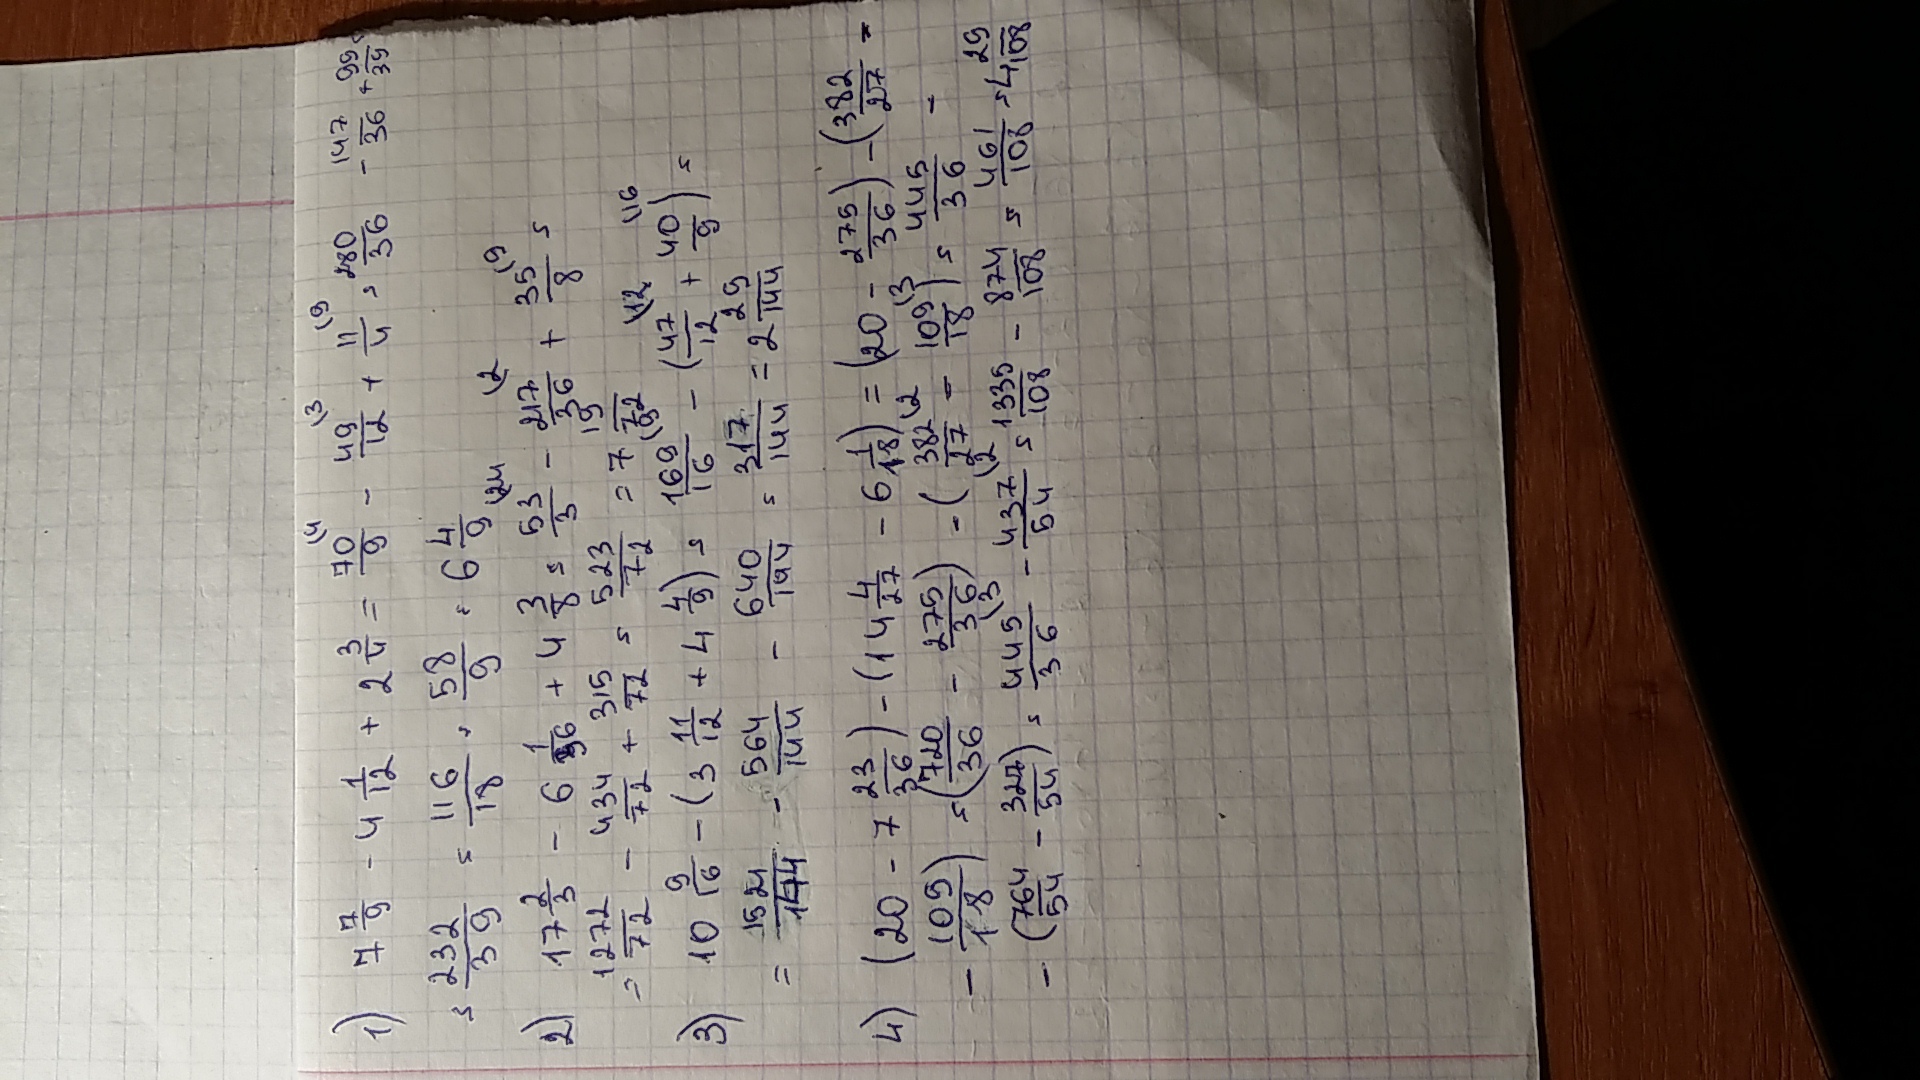 1) 7 7/9 - 4 1/12 + 2 3/4 = 70/9 (4 - 49/12 (3 + 11/4 (9 = 280/36 - 147/36 + 99/39 =
= 232/39 = 116/18 = 58/9 = 6 4/9
2) 17 2/3 - 6 1/36 + 4 3/8 = 53/3 (24 - 217/36 (2 + 35/8 (9 =
= 1272/72 - 434/72 + 315/72 = 523/72 = 7 19/72
3) 10 9/16 - (3 11/12 + 4 4/9) = 169/16 (9 - (47/12 (12 + 40/9 (16) =
= 1521/144 - 564/144 - 640/144 = 317/144 = 2 29/144
4) (20 - 7 23/36) - (14 4/27 - 6 1/18) = (20 - 275/36) - (382/27 -
- 109/18) = (720/36 - 275/36) - (382/27 (2 - 109/18 (3) = 445/36 -
- (764/54 - 327/54) = 445/36 (3 - 437/54 (2 = 1335/108 - 874/108 = 461/108 = 4 29/108